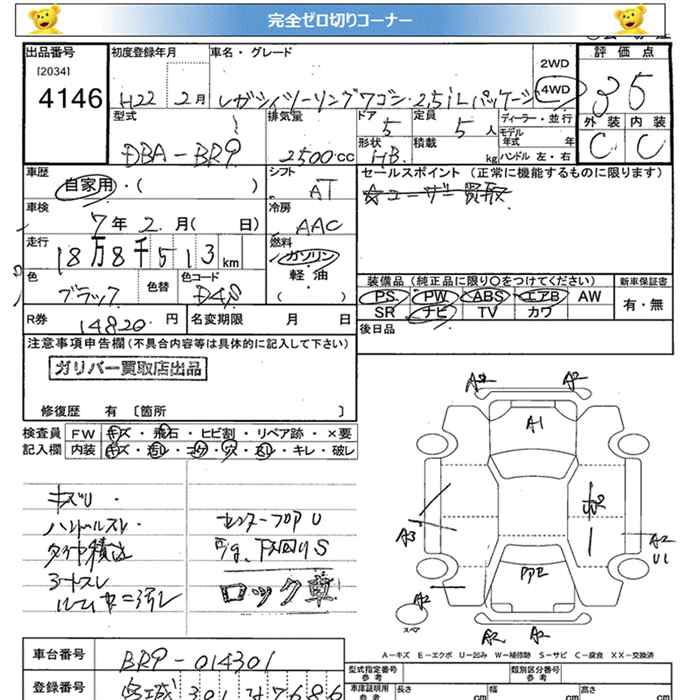 完全ゼロ切りコーナー
出品番号 初度登録年月 車名・グレード 評価点
[2034]
4146 H22 2月 レガシィツーリングワゴン 2.5iLパッケージ 2WD 4WD 3.5
型式 排気量 ドア 定員 ディーラー・並行 外装 内装
DBA-BR9 2500cc 5 5人 モデル年式 年 C C
形状 積載 ハンドル 左・右
HB. kg
車歴 シフト セールスポイント (正常に機能するものに限ります)
自家用・( ) AT ☆ユーザー買取
車検 冷房
7年2.月( 日) AAC
走行 燃料
18万8千513km ガソリン
軽・油
( )
色 色替 色コード 装備品 (純正品に限り○をつけてください) 新車保証書
ブラック D4S PS. PW ABS エアB AW 有・無
SR ナビ TV カワ
R券 14820.円 名変期限 月 日 後日品
注意事項申告欄(不具合内容等は具体的に記入して下さい)
ガリバー買取店出品
修復歴 有 〔箇所 〕
検査員 FW キズ・飛石・ヒビ割・リペア跡・×要
記入欄 内装 キズ・汚レ・コゲ・穴・スレ・キレ・破レ
キズU.
ハンドルスレ.
タイヤ積込
シートスレ
センターフロアU
下回りS
ロック車
A2 A2
A1
A3
W2
A2
U1
A2
A2 A2
スペア
A－キズ E－エクボ U－凹み W－補修跡 S－サビ C－腐食 XX－交換済
車台番号 BR9-014301 型式指定番号 参考 類別区分番号 参考
登録番号 宮城 301 な7686 車庫証明用 参考 長さ cm 幅 cm 高さ cm